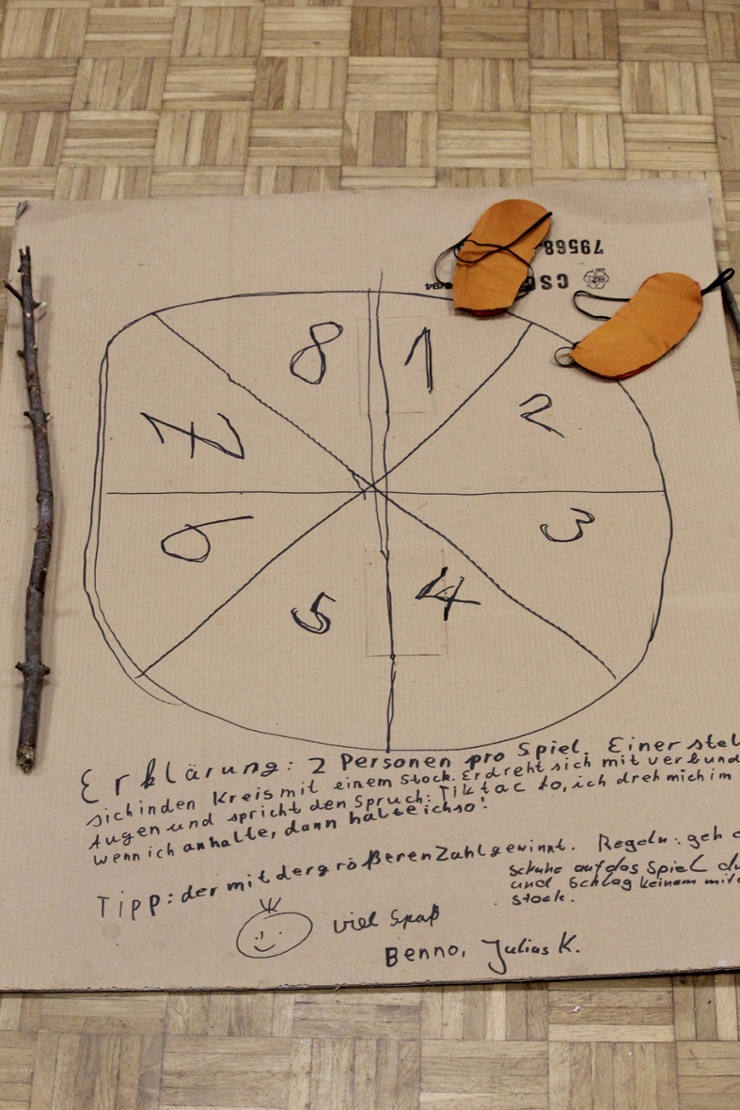 79568
8
1
7
2
6
3
5
4
Erklärung: 2 Personen pro Spiel. Einer stel
sich in den Kreis mit einem Stock. Er dreht sich mit verbund
Augen und spricht den Spruch: Tik tac to, ich dreh mich im
wenn ich anhalte, dann halte ich so!
Tipp: der mit der größeren Zahl gewinnt. Regeln: geh
Schuhe auf das Spiel
und Schlag keinem mit
stock.
viel Spaß
Benno, Julius K.